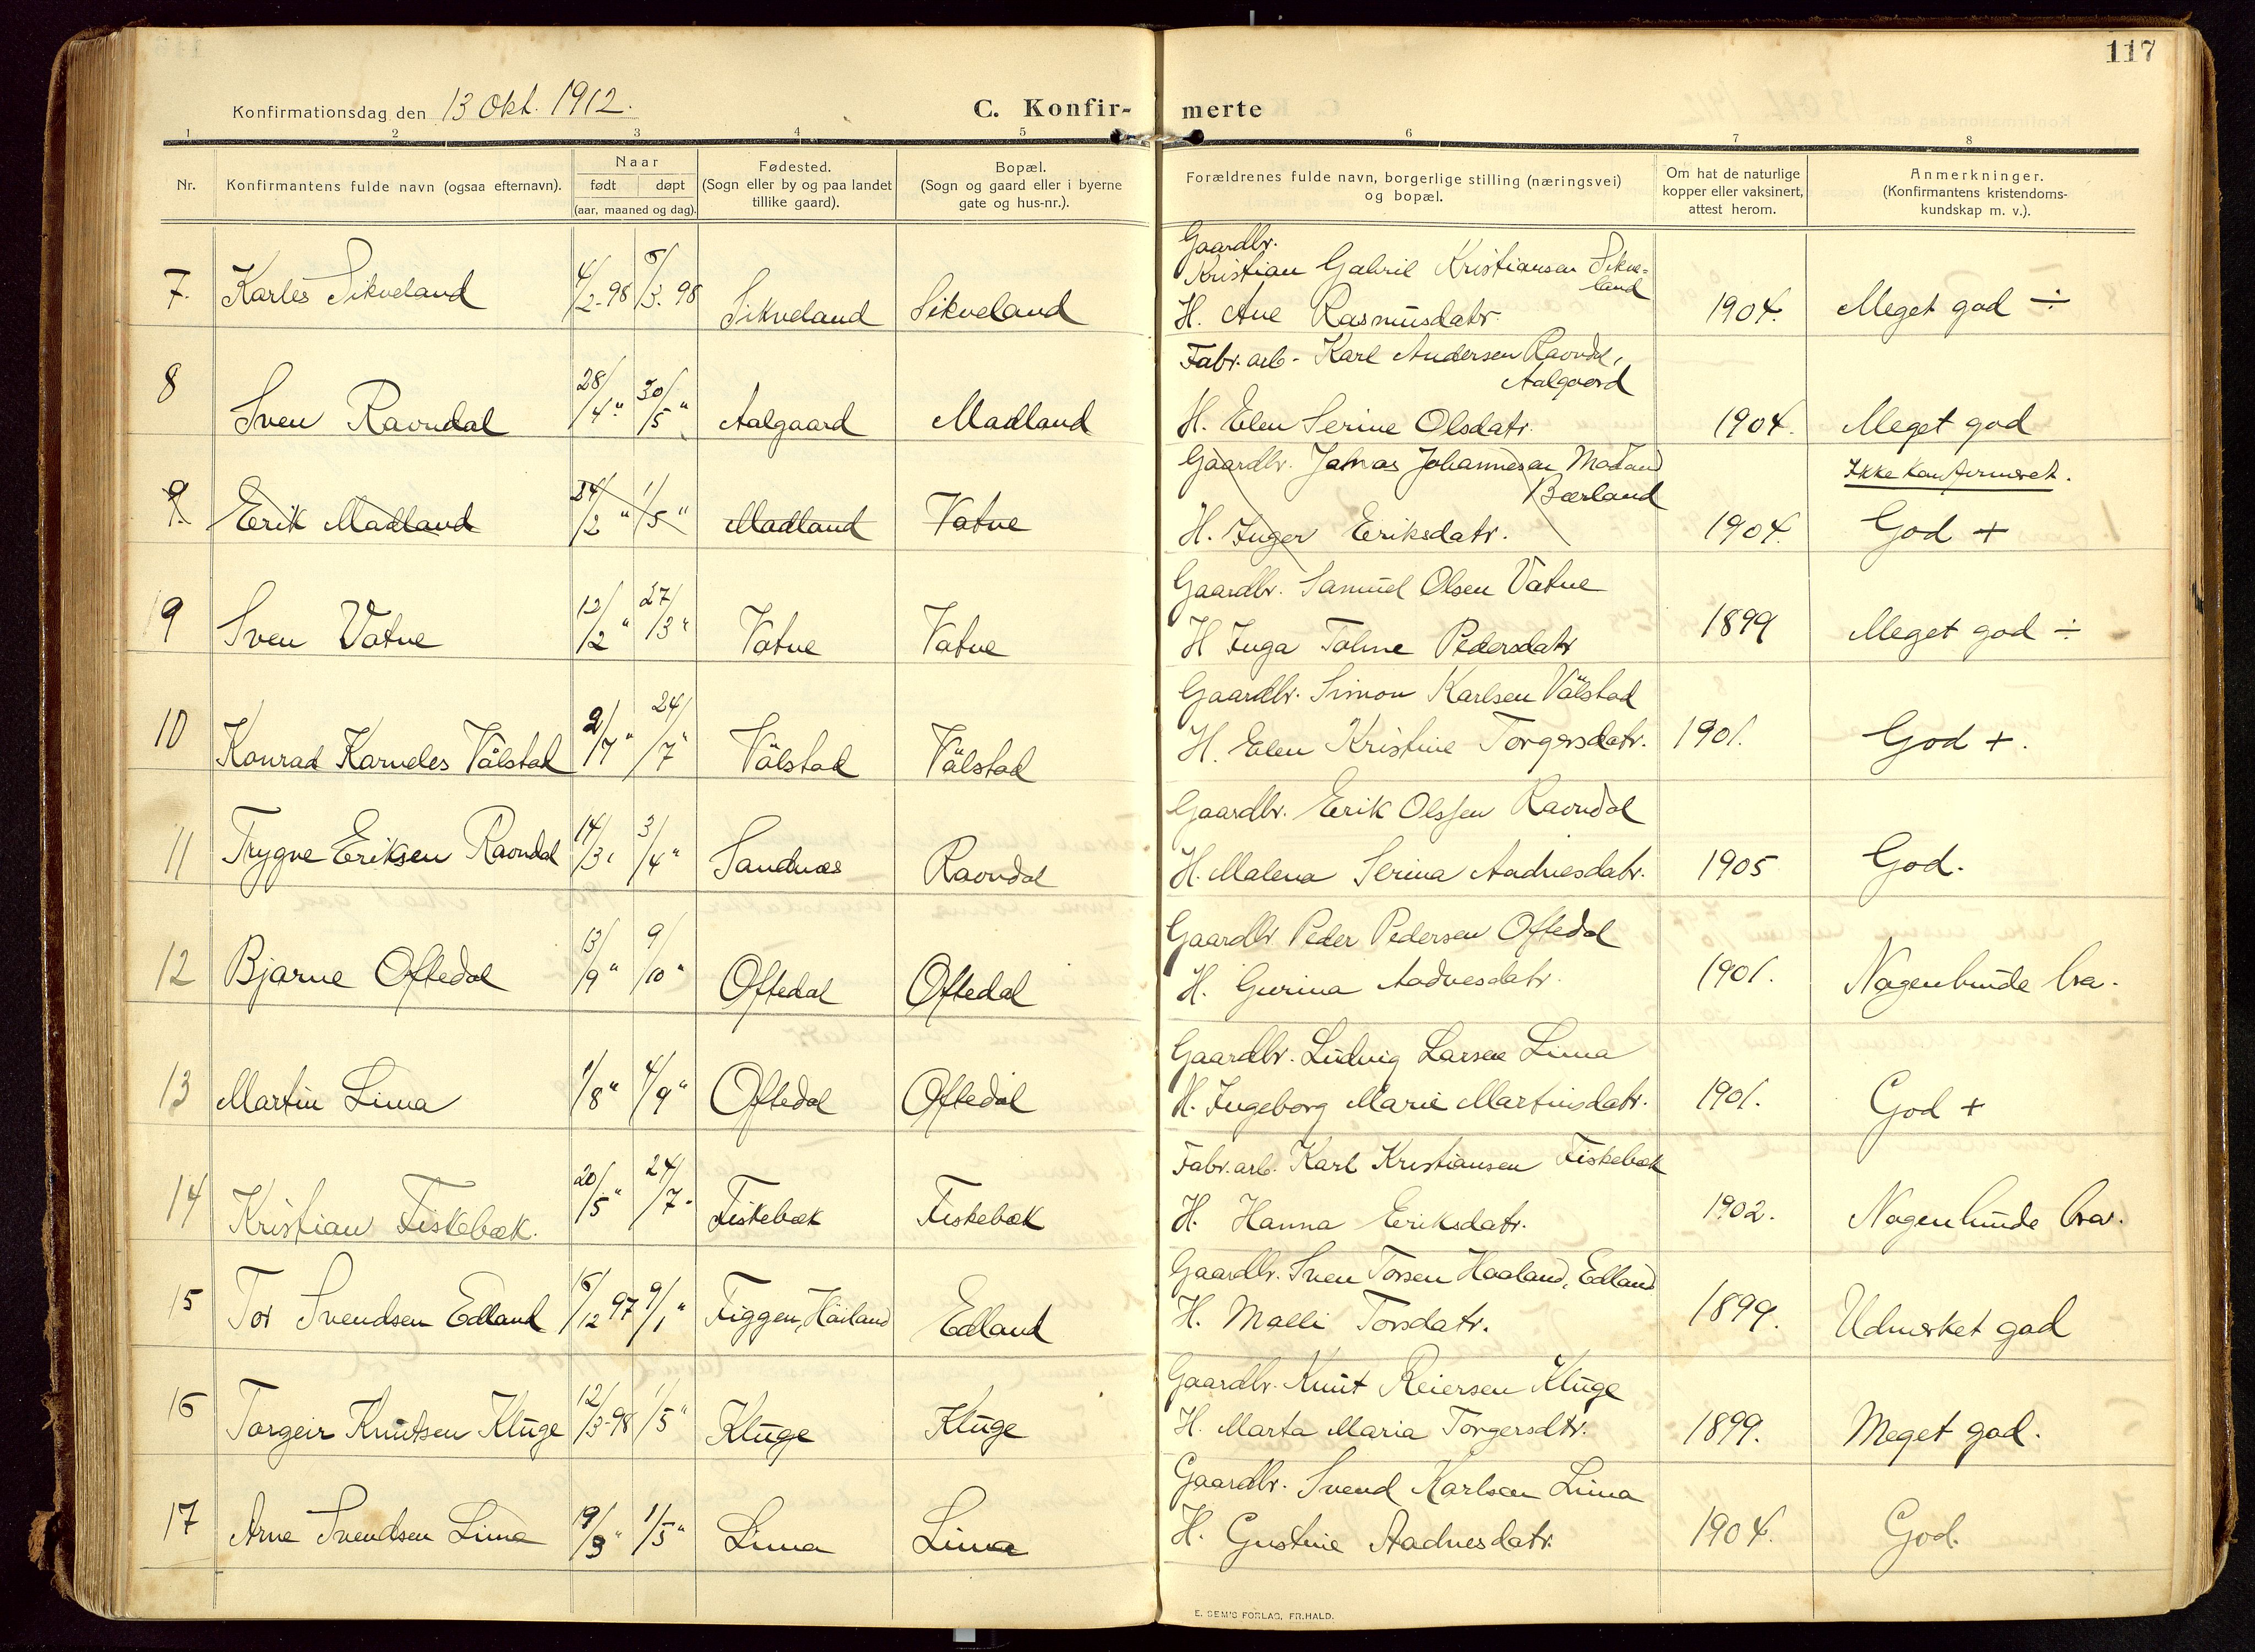 117
Konfirmationsdag den 13 Okt. 1912.
C. Konfir- merte
1 2 3 4 5 6 7 8
Nr.
Konfirmantens fulde navn (ogsaa efternavn).
Naar
født døpt
(aar, maaned og dag).
Fødested.
(Sogn eller by og paa landet
tillike gaard).
Bopæl.
(Sogn og gaard eller i byerne
gate og hus-nr.).
Forældrenes fulde navn, borgerlige stilling (næringsvei)
og bopæl.
Om hat de naturlige
kopper eller vaksinert,
attest herom.
Anmerkninger.
(Konfirmantens kristendoms-
kundskap m. v.).
Gaardbr.
Kristian Gabriel Kristiansen Sikve-
land
7. Karles Sikveland 4/2-98 6/3-98 Sikveland Sikveland H. Ane Rasmusdatr. 1904. Meget god ÷
Fabr. arb. Karl Andersen Ravndal,
Aalgaard
8 Sven Ravndal 28/4 " 30/5 " Aalgaard Madland H. Elen Serine Olsdatr. 1904. Meget god
Gaardbr. Johannesen Madland
Bærland
Ikke konfirmeret.
9. Erik Madland 24/2 " 1/5 " Madland Vatne H. Inger Eriksdatr. 1904. God +
Gaardbr. Samuel Olsen Vatne
9 Sven Vatne 12/2 " 27/3 " Vatne Vatne H Inga Toline Pedersdatr 1899 Meget god ÷
Gaardbr. Simon Karlsen Vålstad
10 Konrad Karneles Vålstad 2/7 " 24/7 " Vålstad Vålstad H. Elen Kristine Torgersdatr. 1901. God +.
Gaardbr. Erik Olssen Ravndal
11 Trygve Eriksen Ravndal 14/3 " 3/4 " Sandnæs Ravndal H. Malena Serina Aadnesdatr. 1905 God.
Gaardbr Peder Pedersen Oftedal
12 Bjarne Oftedal 13/9 " 9/10 " Oftedal Oftedal H. Gurina Aadnesdatr. 1901. Nogenlunde bra.
Gaardbr. Ludvig Larsen Lima
13 Martin Lima 1/8 " 4/9 " Oftedal Oftedal H. Ingeborg Marie Martinsdatr. 1901. God +
Fabr. arb. Karl Kristiansen Fiskebæk
14 Kristian Fiskebæk. 20/5 " 24/7 " Fiskebæk Fiskebæk H. Hanna Eriksdatr. 1902. Nogenlunde bra.
Gaardbr. Sven Torsen Haaland, Edland
15 Tor Svendsen Edland 16/12 97 9/1 " Figgen, Høiland Edland H. Malli Torsdatr. 1899. Udmerket god
Gaardbr. Knut Reiersen Kluge
16 Torgeir Knutsen Kluge 12/3-98 1/5 " Kluge Kluge H. Marta Maria Torgersdtr. 1899. Meget god.
Gaardbr. Svend Karlsen Lima
17 Arne Svendsen Lima 19/3 " 1/5 " Lima Lima H. Gustine Aadnesdatr. 1904. God.
E. SEM'S FORLAG, FR.HALD.